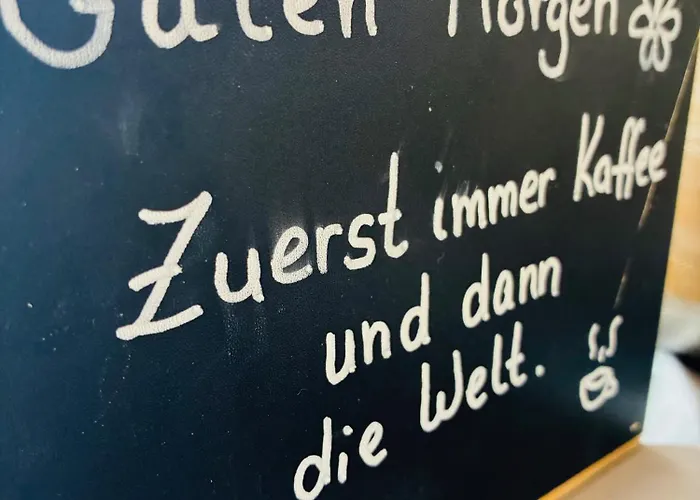 Guten Morgen
Zuerst immer Kaffee
und dann
die Welt.